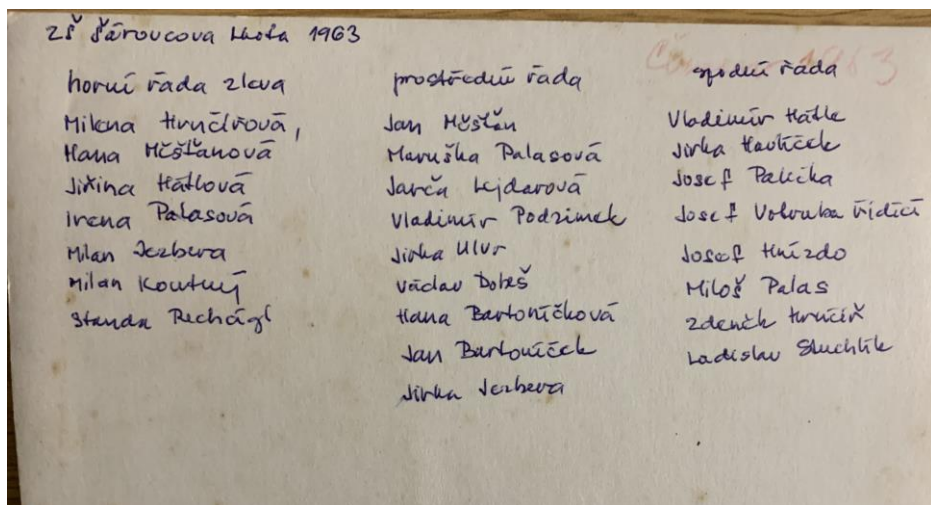 ZŠ Šárovcova Lhota 1963
horní řada zleva
Milena Hrnčířová,
Hana Měšťanová
Jiřina Hátlová
Irena Palasová
Milan Jezbera
Milan Koutný
Standa Rechágl
prostřední řada
Jan Měšťan
Maruška Palasová
Jarča Lejdarová
Vladimír Podzimek
Jirka Ulvr
Václav Dobeš
Hana Bartoníčková
Jan Bartoníček
Jirka Jezbera
spodní řada
Vladimír Hátle
Jirka Havlíček
Josef Palička
Josef Vohrouba řídící
Josef Hnízdo
Miloš Palas
Zdeněk Hrnčíř
Ladislav Šluchtík
1963